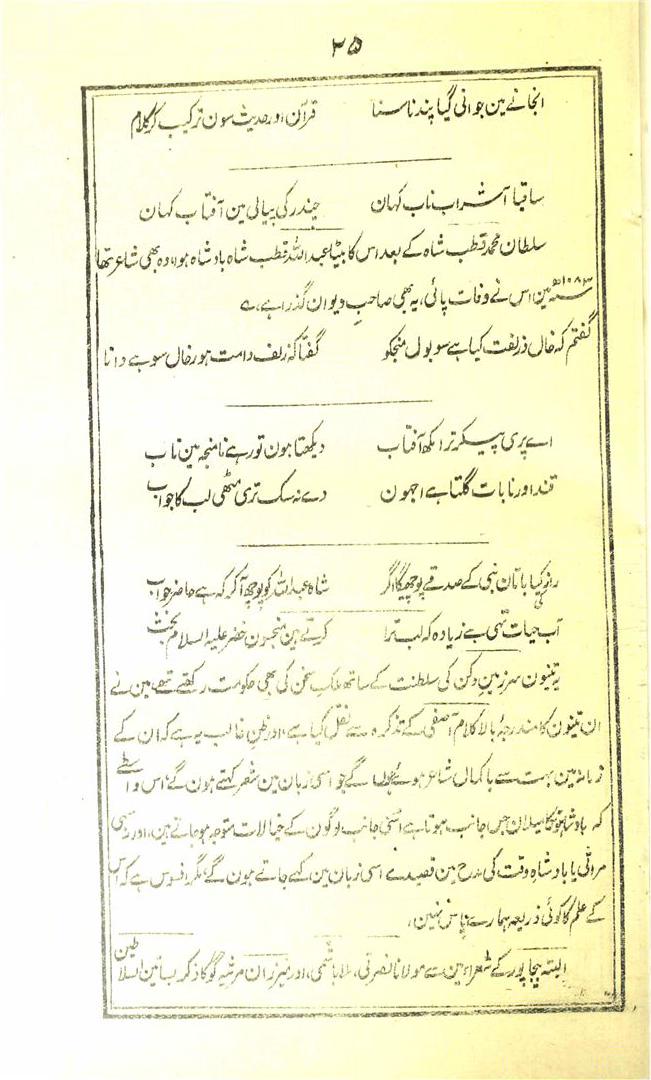 ۲۵
انجانے مین جوانی گیا پند نا سنا قرآن اور حدیث سون ترکیب کر کلام
ساقیا آ شراب ناب کہان چندر کی پیالی مین آفتاب کہان
سلطان محمد قطب شاہ کے بعد اس کا بیٹا عبداللہ قطب شاہ بادشاہ ہوا، وہ بھی شاعر تھا
۱۰۸۳ھ مین اس نے وفات پائی، یہ بھی صاحبِ دیوان گذرا ہے، ؎
گفتم کہ خال زلفت کیا ہے سو بول منجکو گفتا کہ زلف دامت ہور خال سو ہے دانا
اے پری پیکر ترا مکھ آفتاب دیکھتا ہون تو رہے نا منجہ مین تاب
قند اور نابات گلتا ہے اجھون دے نہ سک تری مٹھی لب کا جواب
راز کیا باتان نبی کے صدقے پوچھیگا اگر شاہ عبداللہ کو پوچھ آکر کہ ہے حاضر جواب
کی
آب حیات تھی ہے زیادہ کہ لب ترا کرتے ہین منجسون خضر علیہ السلام بحث
یہ تینون سرزمینِ دکن کی سلطنت کے ساتھ ملکِ سخن کی بھی حکومت رکھتے تھے، مین نے
ان تینون کا مندرجۂ بالا کلام آصفی کے تذکرہ سے نقل کیا ہے، اور ظنِ غالب یہ ہے کہ ان کے
زمانہ مین بہت سے باکمال شاعر ہوئے ہون گے جو اسی زبان مین شعر کہتے ہون گے، اس واسطے
کہ بادشاہونکا میلان جس جانب ہوتا ہے اسی جانب لوگون کے خیالات متوجہ ہو جاتے ہین، اور مذہبی
مراثی یا بادشاہِ وقت کی مدح مین قصیدے اسی زبان مین کہے جاتے ہون گے، مگر افسوس ہے کہ اس
کے علم کا کوئی ذریعہ ہمارے پاس نہین،
البتہ بیجاپور کے شعراء مین سے مولانا نصرتی، ملا ہاشمی، اور میرزان مرثیہ گو کا ذکر بساتین السلاطین